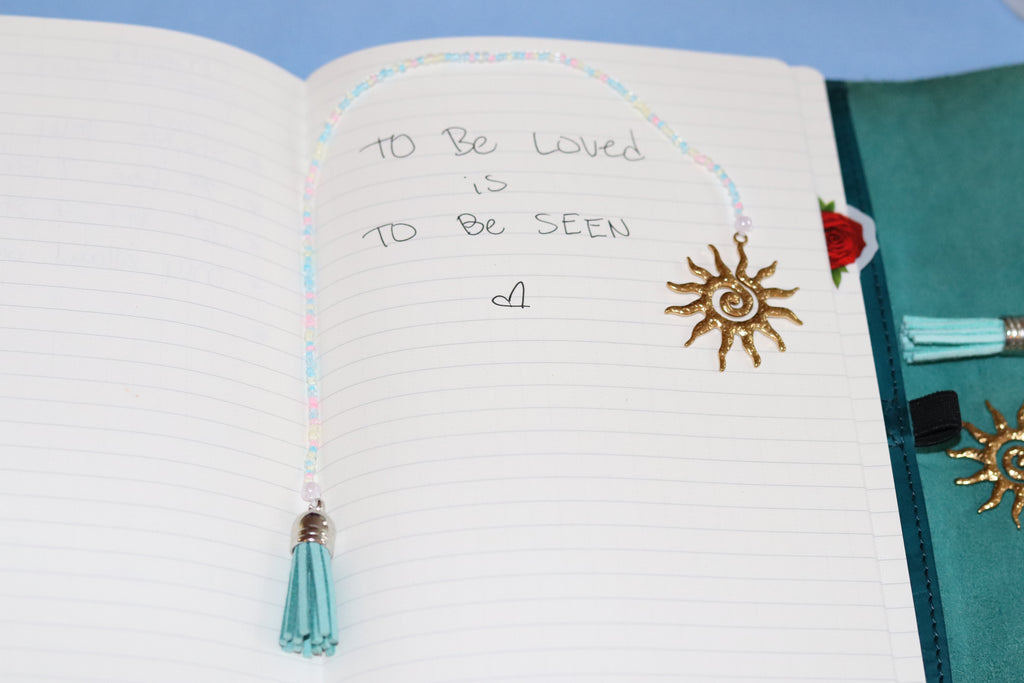 TO Be Loved
is
TO Be SEEN